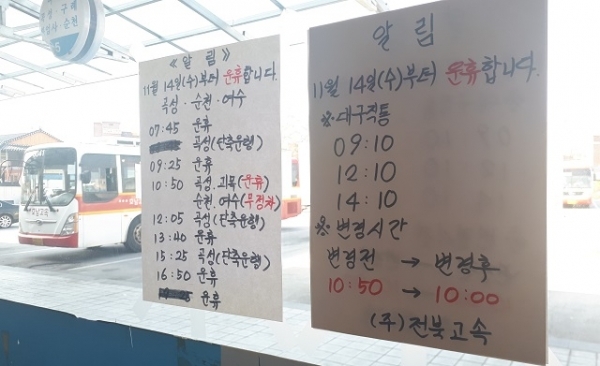 곡성·구례
순천
5
《알림》
11월 14일(수)부터 운휴합니다.
곡성·순천·여수
07:45 운휴
곡성(단축운행)
09:25 운휴
10:50 곡성.괴목(운휴)
순천.여수(무정차)
12:05 곡성(단축운행)
13:40 운휴
15:25 곡성(단축운행)
16:50 운휴
운휴
알림
11월 14일(수)부터 운휴합니다.
※대구직통
09:10
12:10
14:10
※변경시간
변경전 → 변경후
10:50 → 10:00
(주)전북고속